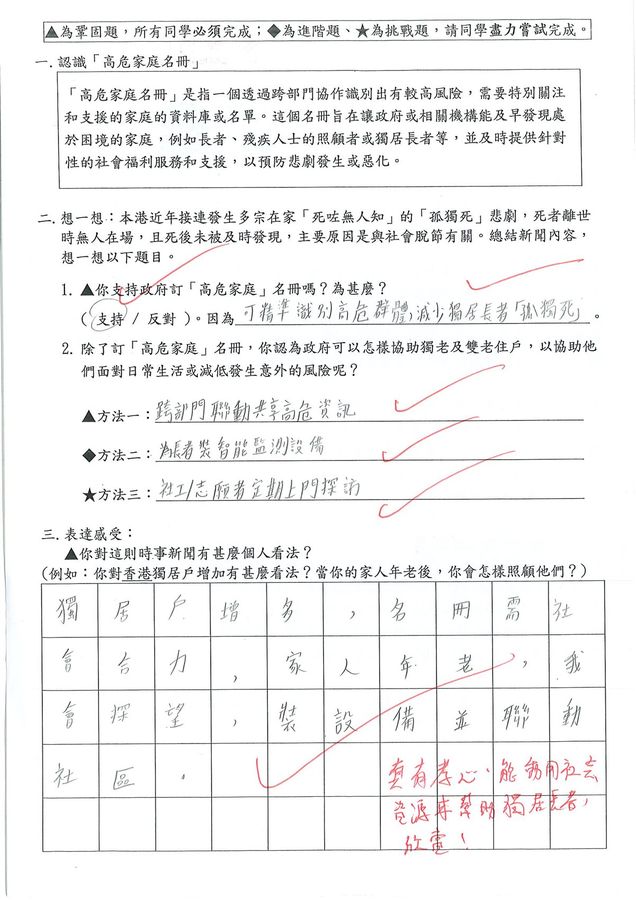 ▲為鞏固題，所有同學必須完成；◆為進階題、★為挑戰題，請同學盡力嘗試完成。
一. 認識「高危家庭名冊」
「高危家庭名冊」是指一個透過跨部門協作識別出有較高風險，需要特別關注
和支援的家庭的資料庫或名單。這個名冊旨在讓政府或相關機構能及早發現處
於困境的家庭，例如長者、殘疾人士的照顧者或獨居長者等，並及時提供針對
性的社會福利服務和支援，以預防悲劇發生或惡化。
二. 想一想：本港近年接連發生多宗在家「死咗無人知」的「孤獨死」悲劇，死者離世
時無人在場，且死後未被及時發現，主要原因是與社會脫節有關。總結新聞內容，
想一想以下題目。
1. ▲你支持政府訂「高危家庭」名冊嗎？為甚麼？
（ 支持 / 反對 ）。因為 可精準識別高危群體，減少獨居長者「孤獨死」 。
2. 除了訂「高危家庭」名冊，你認為政府可以怎樣協助獨老及雙老住戶，以協助他
們面對日常生活或減低發生意外的風險呢？
▲方法一：跨部門聯動共享高危資訊
◆方法二：為長者裝智能監測設備
★方法三：社工/志願者定期上門探訪
三. 表達感受：
▲你對這則時事新聞有甚麼個人看法？
(例如：你對香港獨居戶增加有甚麼看法？當你的家人年老後，你會怎樣照顧他們？)
獨居戶增多，名冊需社
會合力，家人年老，我
會探望，裝設備並聯動
社區。
真有孝心、能動用社會
資源來幫助獨居長者，
欣慰！